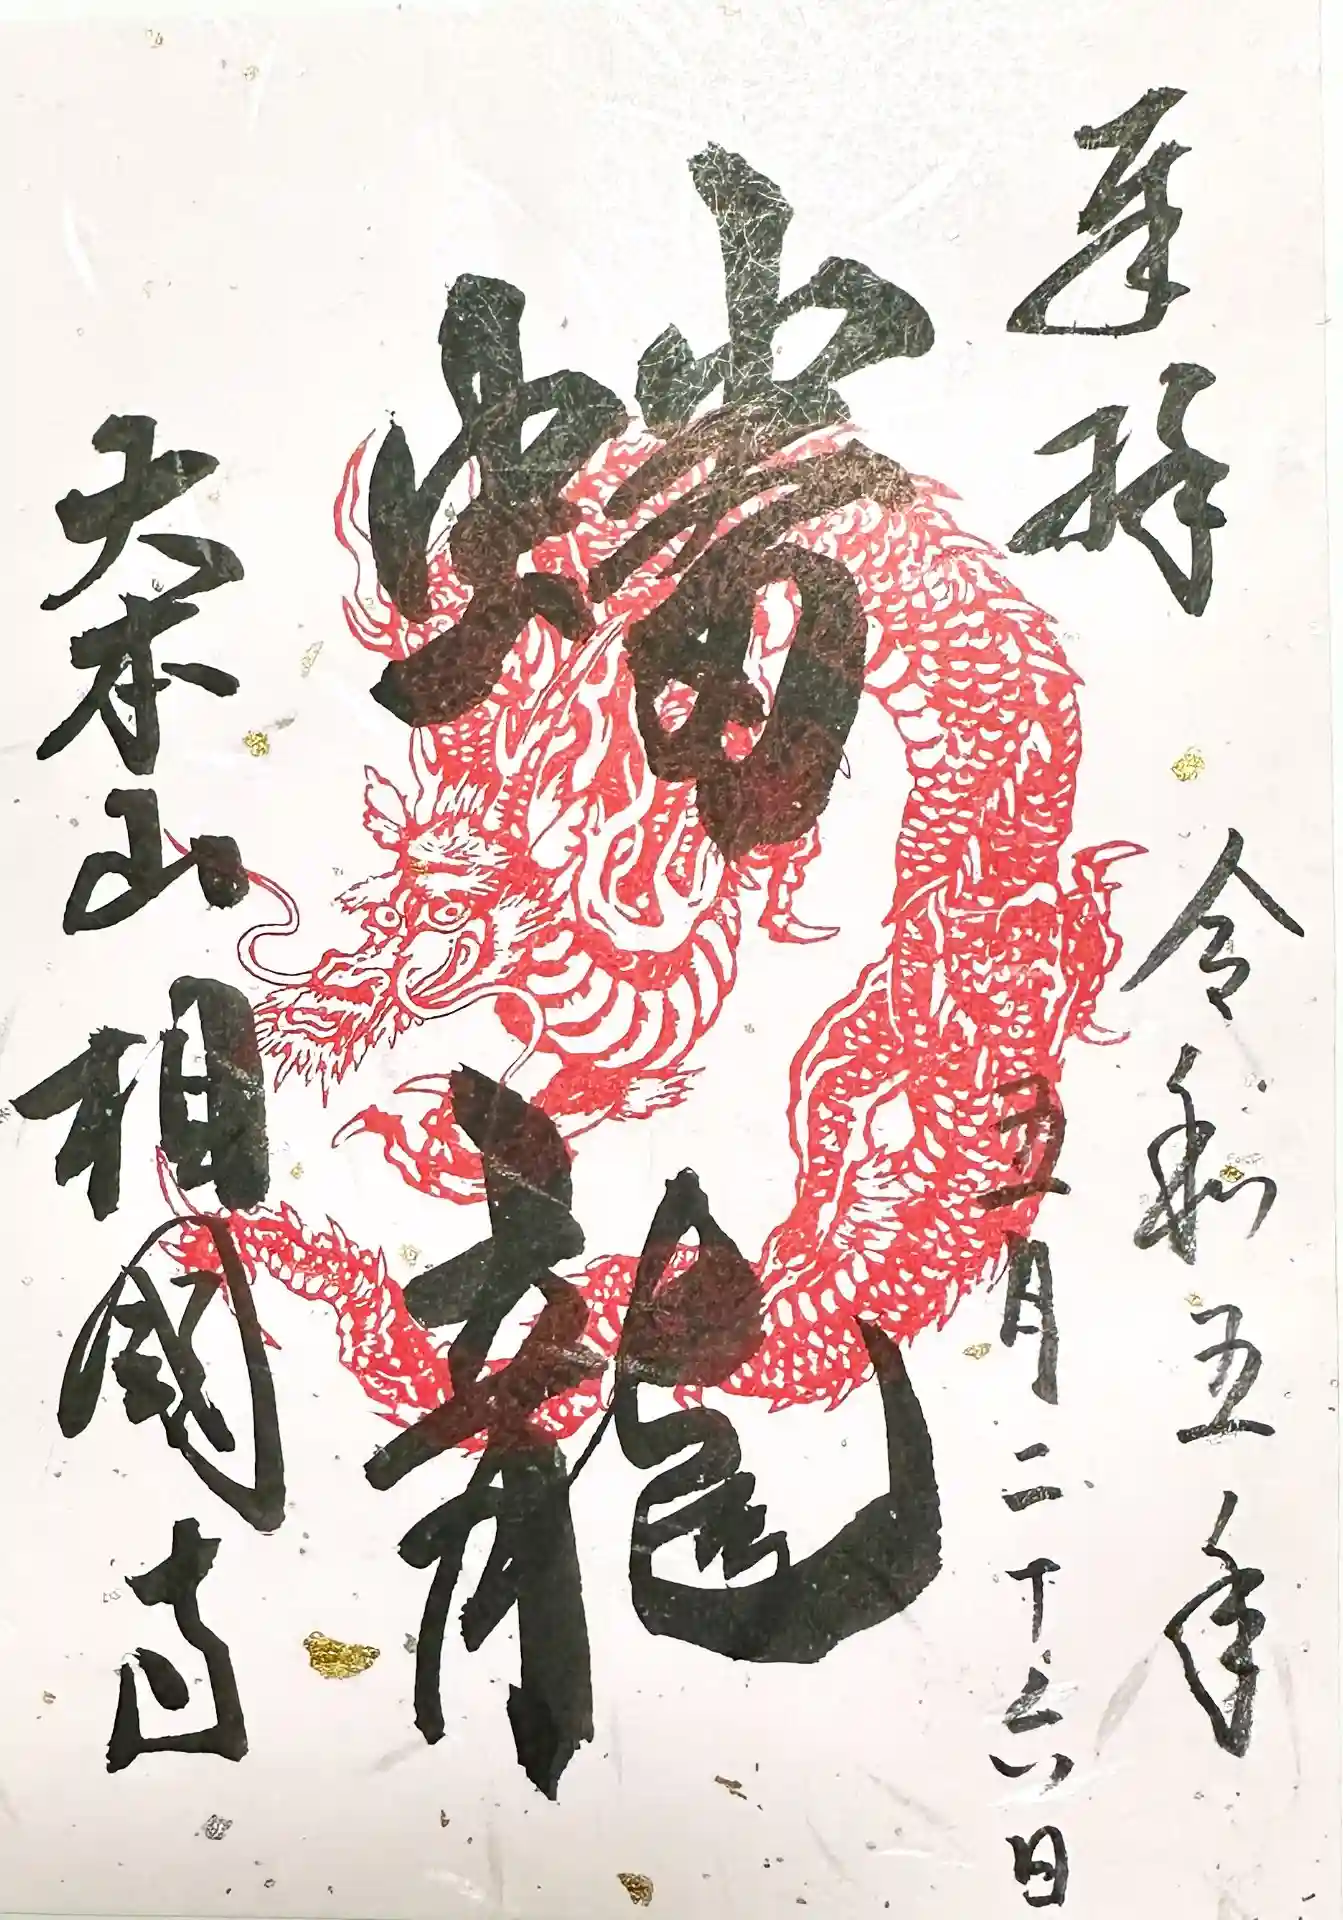 奉拝
令和五年
三月二十六日
蟠龍
大本山相國寺